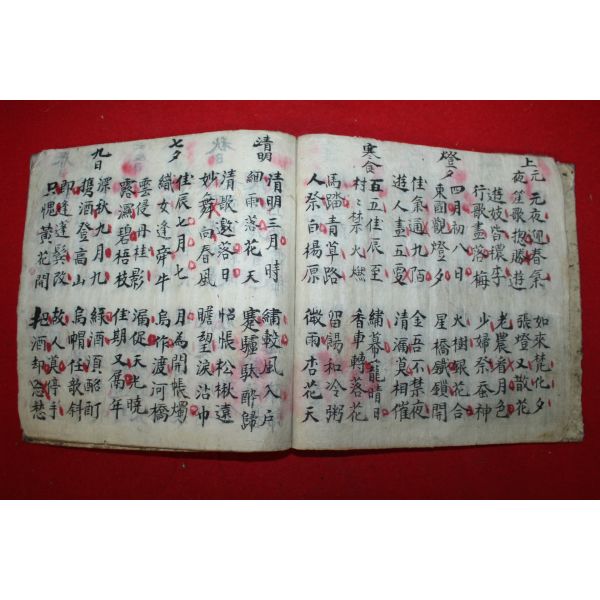 上元 元夜迎春氣 如來梵化夕
夜 笙歌抱勝遊 張燈又散花
遊妓皆穠李 老農看月色
行歌盡落梅 少婦祭蚕神
燈夕 四月初八日 火樹銀花合
東國觀燈夕 星橋鐵鎖開
佳氣通九陌 金吾不禁夜
遊人畫五雲 清漏莫相催
寒食 百五佳辰至 繡幕籠晴日
村〻禁火燃 香車轉落花
馬踏青草路 留餳和冷粥
人祭白楊原 微雨杏花天
清明 清明三月時 繡轂風入戶
細雨落花天 蹇驢馱醉歸
清歌邀落日 怊悵松楸遠
妙舞向春風 瞻望淚沾巾
七夕 佳辰七月七 月為開帳燭
織女逢牽牛 烏作渡河橋
雲侵丹桂影 漏促天光曉
露濕碧梧枝 佳期又隔年
九日 深秋九月九 綠酒須酩酊
携酒登高山 烏帽任欹斜
即逢蓬鬂改 故人莫停手
只愧黃花開 把酒却愁